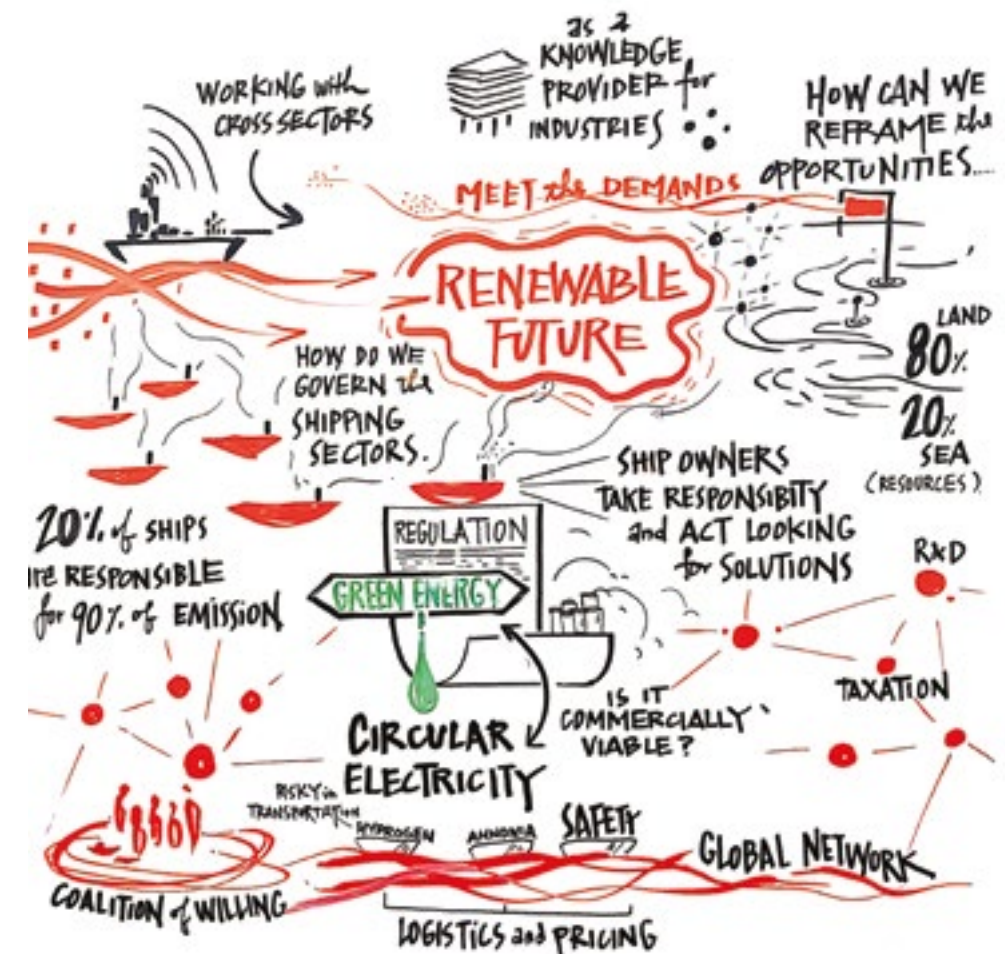 WORKING with
CROSS SECTORS
as a
KNOWLEDGE
PROVIDER for
INDUSTRIES
HOW CAN WE
REFRAME the
OPPORTUNITIES....
MEET the DEMANDS
RENEWABLE
FUTURE
LAND
80%
20%
SEA
(RESOURCES)
HOW DO WE
GOVERN the
SHIPPING
SECTORS.
SHIP OWNERS
TAKE RESPONSIBITY
and ACT LOOKING
for SOLUTIONS
20% of SHIPS
are RESPONSIBLE
for 90% of EMISSION
REGULATION
GREEN ENERGY
R&D
TAXATION
IS IT
COMMERCIALLY
VIABLE?
CIRCULAR
ELECTRICITY
RISKY in
TRANSPORTATION
HYDROGEN
AMMONIA
SAFETY
GLOBAL NETWORK
COALITION of WILLING
LOGISTICS and PRICING